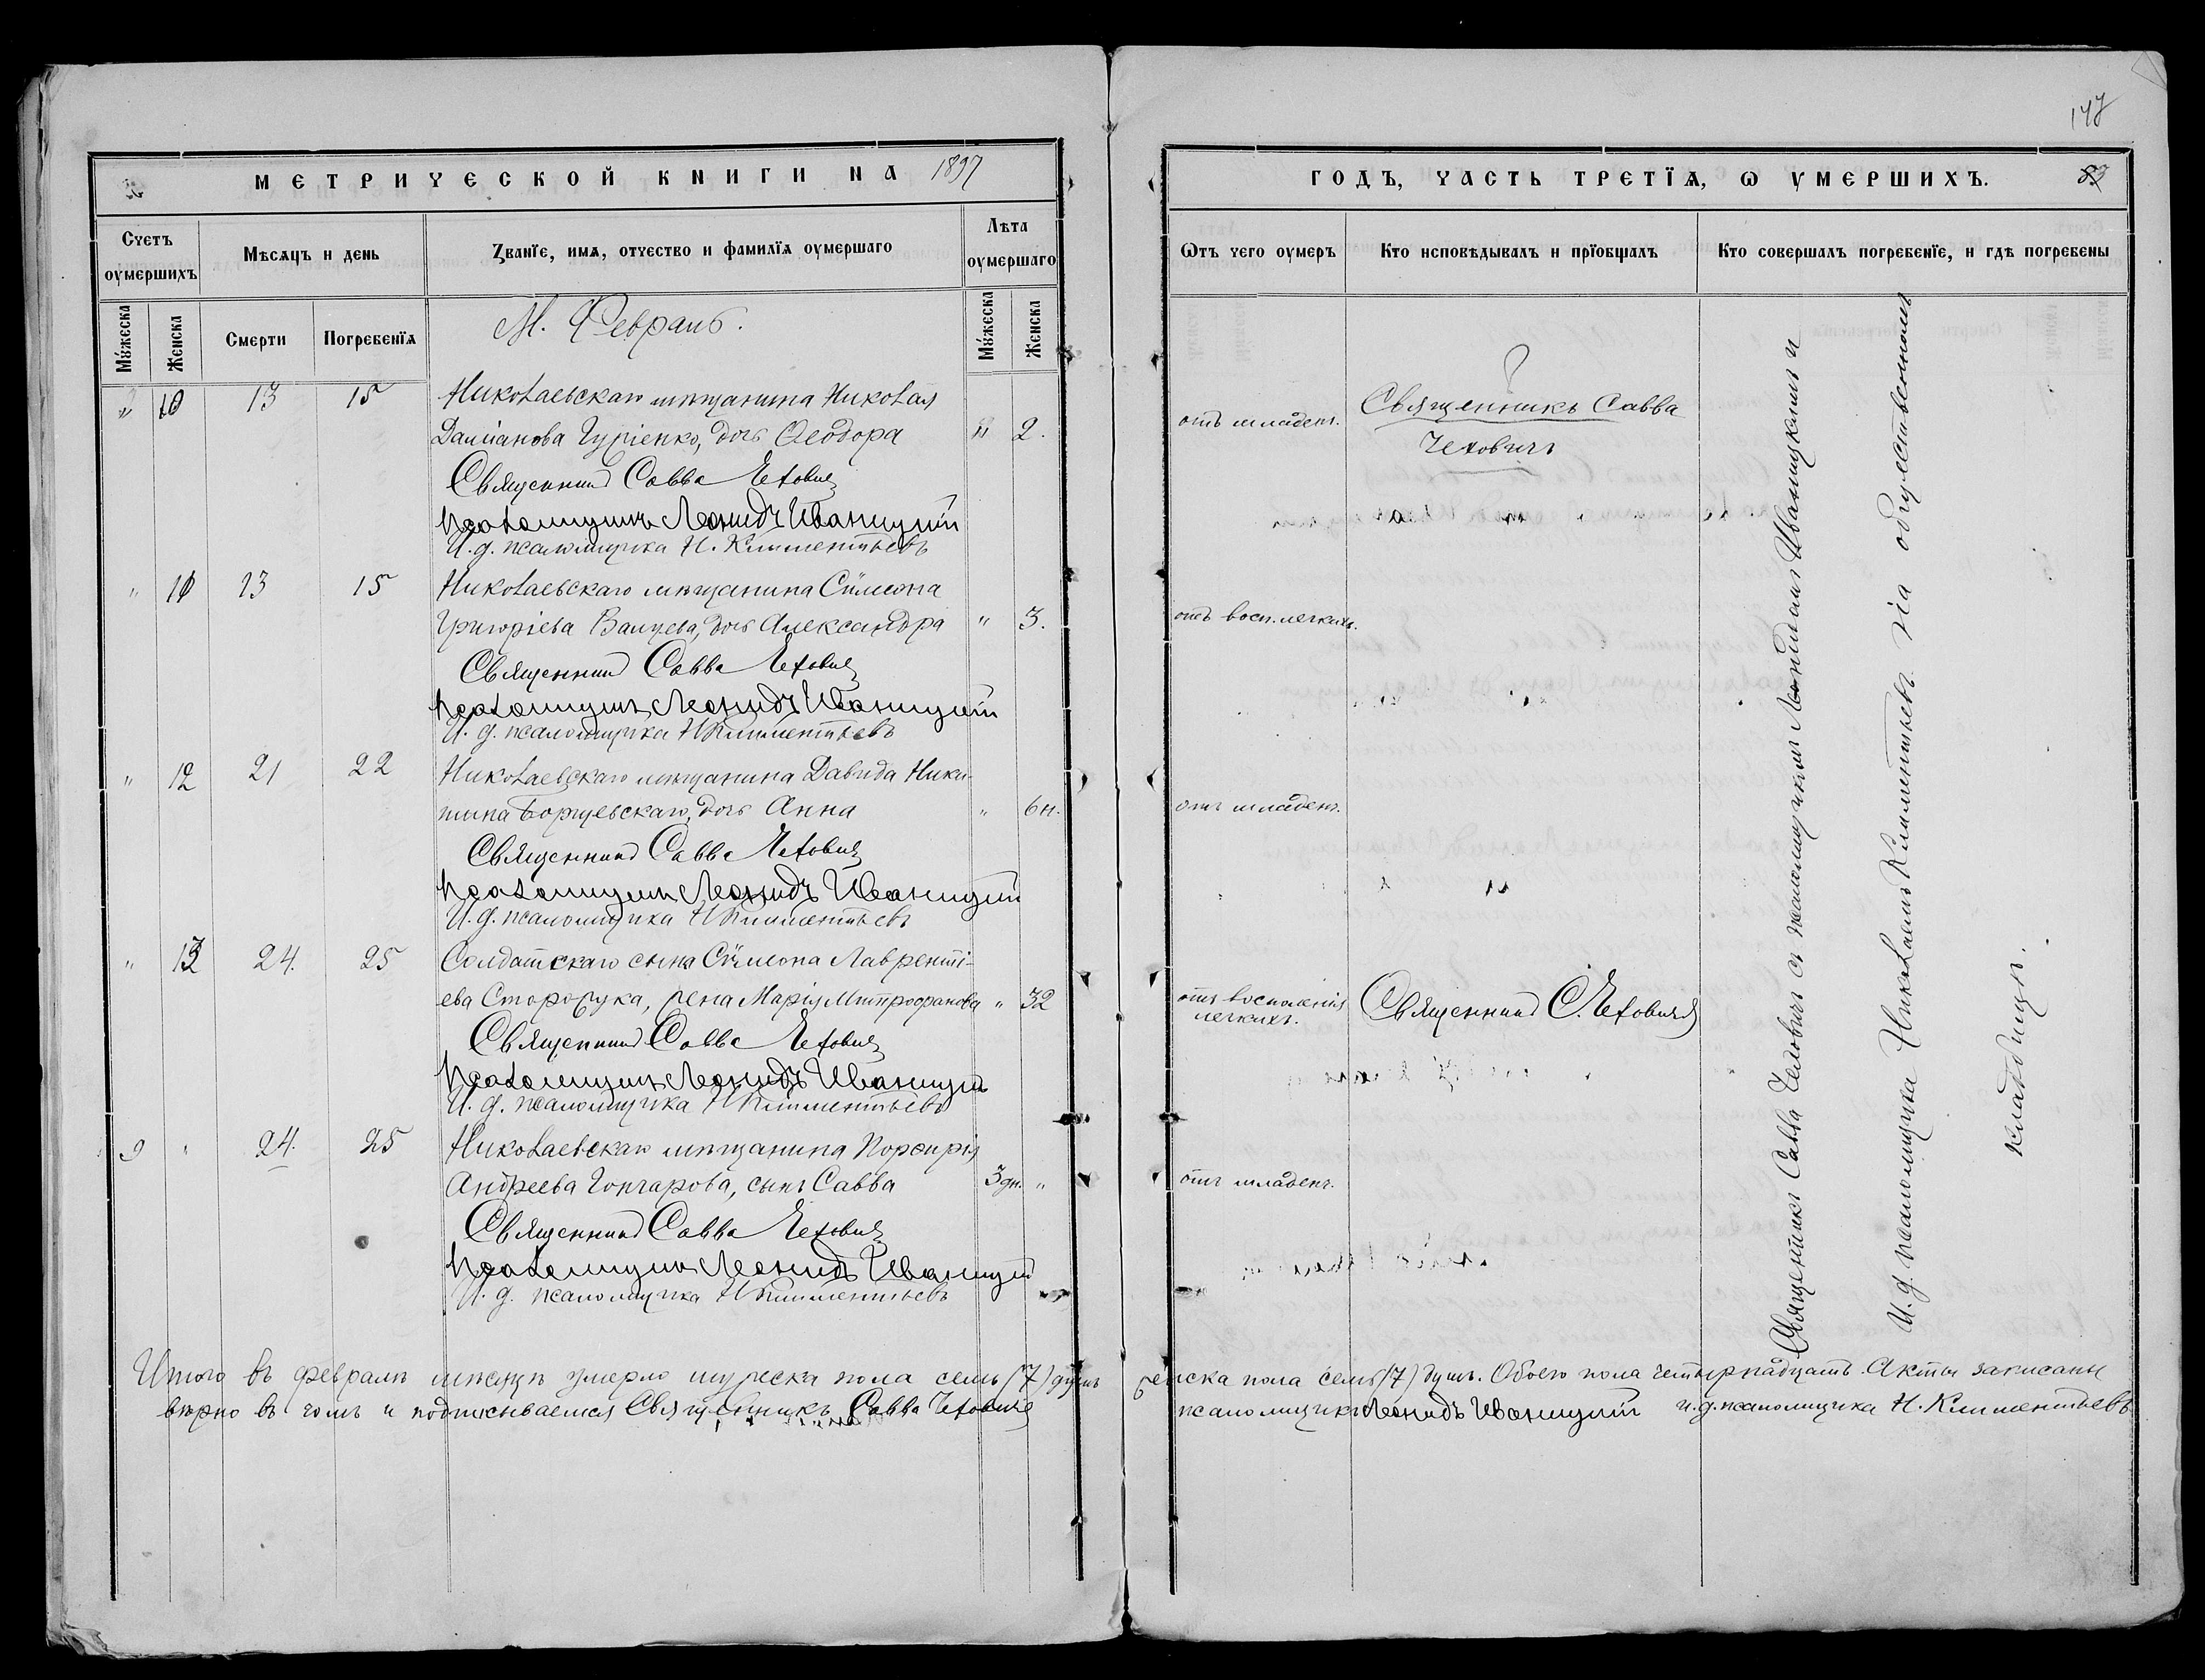 147
МЕТРИЧЕСКОЙ КНИГИ НА 1897
ГОДЪ, ЧАСТЬ ТРЕТЇѦ, Ѡ УМЕРШИХЪ.
89
Счетъ оумершихъ
Мѣсѧцъ и день
Званїе, имѧ, отчество и фамилїѧ оумершаго
Лѣта оумершаго
Ѿтъ чего оумеръ
Кто исповѣдывалъ и прїобщалъ
Кто совершалъ погребенїе, и гдѣ погребены
Мужеска
Женска
Смерти
Погребенїѧ
Мужеска
Женска
М. Февраль.
" 10 13 15 Николаевскаго мѣщанина Николая
Даміанова Гуріенко, дочь Ѳеодора " 2. отъ младен. Священникъ Савва
Чехович
Священникъ Савва Чехович
Псаломщикъ Леонидъ Иваницкій
И. д. псаломщика Н. Климентьевъ
" 11 13 15 Николаевскаго мѣщанина Сѵмеона
Григоріева Ванцева, дочь Александра " 3. отъ восп. легкихъ.
Священникъ Савва Чехович
Псаломщикъ Леонидъ Иваницкій
И. д. псаломщика Н Климентьевъ
" 12 21 22 Николаевскаго мѣщанина Давида Ники-
тина Борщевскаго, дочь Анна " 6 н. отъ младен.
Священникъ Савва Чехович
Псаломщикъ Леонидъ Иваницкій
И. д. псаломщика Н Климентьевъ
" 13 24. 25 Солдатскаго сына Сѵмеона Лавренті-
ева Сторожука, жена Марія Митрофанова " 32 отъ воспаленія
легкихъ. Священникъ С. Чехович
Священникъ Савва Чехович
Псаломщикъ Леонидъ Иваницкій
И. д. псаломщика Н Климентьевъ
9 " 24. 25 Николаевскаго мѣщанина Порфирія
Андреева Гончарова, сынъ Савва 3 дн. " отъ младен.
Священникъ Савва Чехович
Псаломщикъ Леонидъ Иваницкій
И. д. псаломщика Н Климентьевъ
Священникъ Савва Чеховичъ съ псаломщикомъ Леонидомъ Иваницкимъ и
И. д. псаломщика Николаемъ Климентьевымъ на общественномъ
кладбищѣ.
Итого въ февралѣ мѣсяцѣ умерло мужеска пола семь (7) душъ женска пола семь (7) душъ. Обоего пола четырнадцать. Акты записаны
вѣрно въ чемъ и подписываемся Священникъ Савва Чехович псаломщикъ Леонидъ Иваницкій и. д. псаломщика Н. Климентьевъ